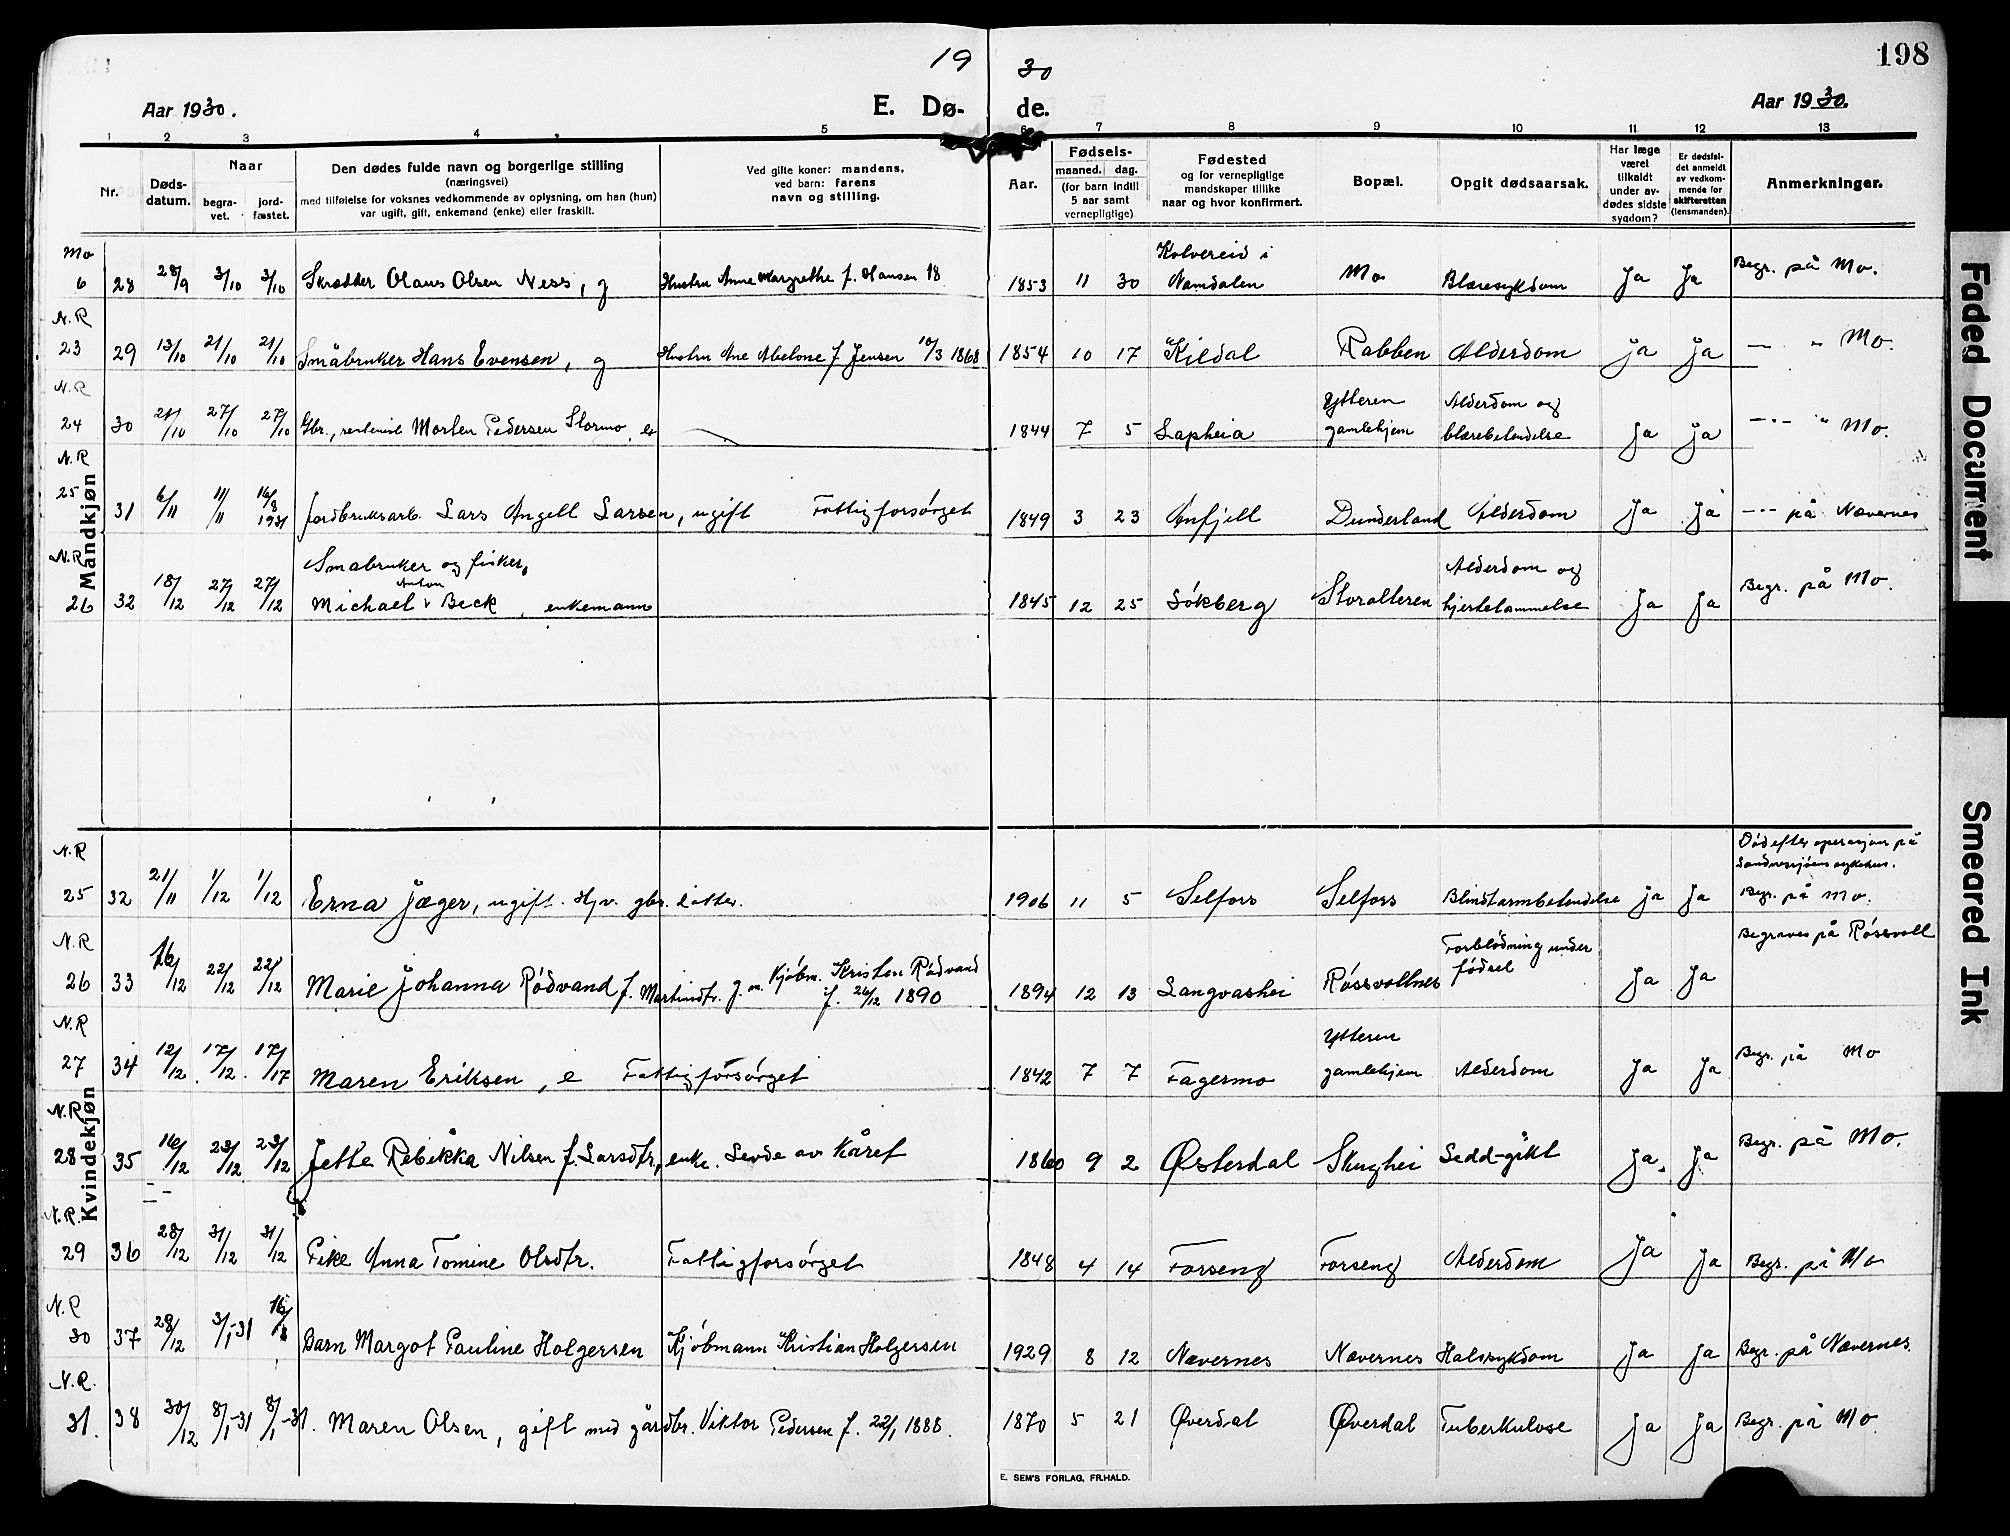 19 30
198
Aar 1930. E. Dø- de. Aar 1930.
1 2 3 4 5 6 7 8 9 10 11 12 13
Nr.
Døds-
datum.
Naar
begra-
vet.
jord-
fæstet.
Den dødes fulde navn og borgerlige stilling
(næringsvei)
med tilføielse for voksnes vedkommende av oplysning, om han (hun)
var ugift, gift, enkemand (enke) eller fraskilt.
Ved gifte koner: mandens,
ved barn: farens
navn og stilling.
Aar.
Fødsels-
maaned. dag.
(for barn indtil
5 aar samt
vernepligtige)
Fødested
og for vernepligtige
mandskaper tillike
naar og hvor konfirmert.
Bopæl.
Opgit dødsaarsak.
Har læge
været
tilkaldt
under av-
dødes sidste
sygdom?
Er dødsfal-
det anmeldt
av vedkom-
mende for
skifteretten
(lensmanden).
Anmerkninger.
Mandkjøn
Mo
6 28 28/9 3/10 3/10 Skrædder Olaus Olsen Ness, g Hustru Anne Margrethe f. Hansen 18 1853 11 30 Kolvereid i Namdalen Mo Blæresykdom Ja Ja Begr. på Mo.
N.R
23 29 13/10 21/10 21/10 Småbruker Hans Evensen, g Hustru Ane Abelone f Jensen 10/3 1868 1854 10 17 Kildal Rabben Alderdom ja ja — " Mo.
N.R
24 30 21/10 27/10 27/10 Gbr., Morten Pedersen Stormo, e 1844 7 5 Lapheia Ytteren gamlehjem Alderdom og blærebetendelse Ja ja — " Mo.
N.R
25 31 6/11 11/11 16/8 1931 Jordbruksarb. Lars Angell Larsen, ugift Fattigforsørget 1849 3 23 Anfjell Dunderland Alderdom Ja ja — på Nævernes
N.R
26 32 18/12 27/12 27/12 Småbruker og fisker,
Michael Anton Beck, enkemann 1845 12 25 Søkberg Storalteren Alderdom og hjertelammelse Ja Ja Begr. på Mo.
Kvindekjøn
N.R
25 32 21/11 1/12 1/12 Erna Jæger, ugift. Hjv. gbr. datter. 1906 11 5 Selfors Selfors Blindtarmbetendelse ja ja Død efter operasjon på Sandnessjøens sykehus. Begr. på Mo.
N.R
26 33 16/12 22/12 22/12 Marie Johanna Rødvand f. Martindtr. g. m. Kjøbm. Kristen Rødvand f. 26/12 1890 1894 12 13 Langvashei Røssvollnes Forblødning under fødsel Ja Ja Begraves på Røssvoll
N.R
27 34 12/12 17/12 17/17 Maren Eriksen, e Fattigforsørget 1842 7 7 Fagermo Ytteren gamlehjem Alderdom Ja Ja Begr. på Mo
N.R
28 35 16/12 23/12 23/12 Jette Rebekka Nilsen f. Larsdtr, enke. Levde av kåret 1860 9 2 Østerdal Skughei Ledd-gikt Ja. Ja Begr. på Mo.
N.R.
29 36 28/12 31/12 31/12 Pike Anna Tomine Olsdtr. Fattigforsørget 1848 4 14 Forseng Forseng Alderdom Ja Ja Begr. på Mo
N.R
30 37 28/12 3/1-31 16/8 Barn Margot Pauline Holgersen Kjøbmann Kristian Holgersen 1929 8 12 Nævernes Nævernes Halssykdom Ja Ja Begr. på Nævernes
N.R.
31. 38 30/12 8/1-31 8/1-31. Maren Olsen, gift med gårdbr. Viktor Pedersen f. 22/1 1888. 1870 5 21 Øverdal Øverdal Tuberkulose Ja Ja Begr. på Mo
E. SEM'S FORLAG, FR.HALD.
Faded Document
Smeared Ink